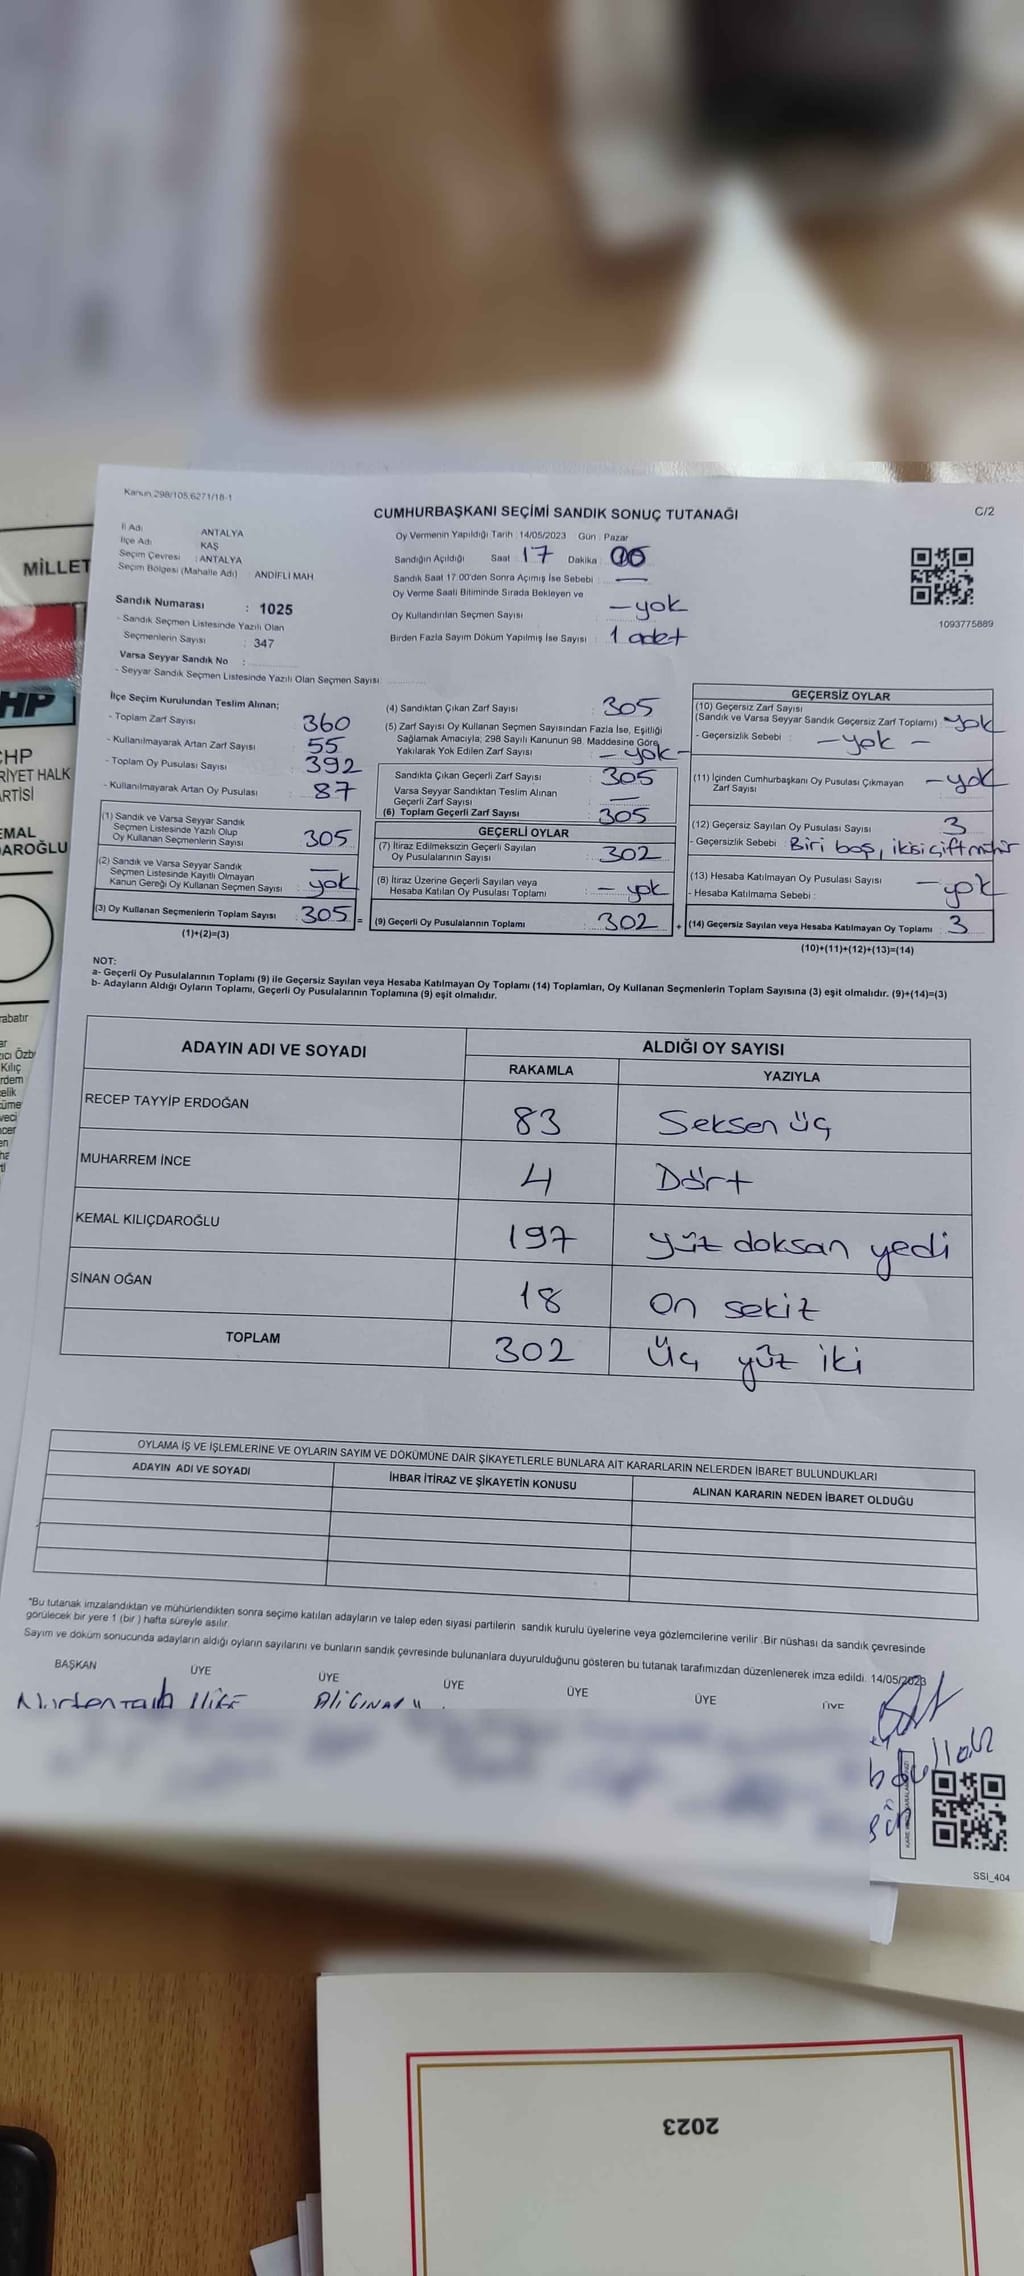 Kanun 298/105,6271/18-1
CUMHURBAŞKANI SEÇİMİ SANDIK SONUÇ TUTANAĞI
C/2
İl Adı ANTALYA
İlçe Adı KAŞ
Seçim Çevresi : ANTALYA
Seçim Bölgesi (Mahalle Adı) : ANDİFLİ MAH
Sandık Numarası : 1025
- Sandık Seçmen Listesinde Yazılı Olan
Seçmenlerin Sayısı : 347
Varsa Seyyar Sandık No :
- Seyyar Sandık Seçmen Listesinde Yazılı Olan Seçmen Sayısı
Oy Vermenin Yapıldığı Tarih : 14/05/2023 Gün : Pazar
Sandığın Açıldığı Saat 17 Dakika
Sandık Saat 17:00'den Sonra Açımış İse Sebebi : —
Oy Verme Saati Bitiminde Sırada Bekleyen ve
Oy Kullandırılan Seçmen Sayısı : — yok
Birden Fazla Sayım Döküm Yapılmış İse Sayısı : 1 adet
1093775889
İlçe Seçim Kurulundan Teslim Alınan;
- Toplam Zarf Sayısı : 360
- Kullanılmayarak Artan Zarf Sayısı : 55
- Toplam Oy Pusulası Sayısı : 392
- Kullanılmayarak Artan Oy Pusulası : 87
(1) Sandık ve Varsa Seyyar Sandık
Seçmen Listesinde Yazılı Olup
Oy Kullanan Seçmenlerin Sayısı : 305
(2) Sandık ve Varsa Seyyar Sandık
Seçmen Listesinde Kayıtlı Olmayan
Kanun Gereği Oy Kullanan Seçmen Sayısı : yok
(3) Oy Kullanan Seçmenlerin Toplam Sayısı : 305 =
(1)+(2)=(3)
(4) Sandıktan Çıkan Zarf Sayısı : 305
(5) Zarf Sayısı Oy Kullanan Seçmen Sayısından Fazla İse, Eşitliği
Sağlamak Amacıyla, 298 Sayılı Kanunun 98. Maddesine Göre
Yakılarak Yok Edilen Zarf Sayısı : — yok —
Sandıkta Çıkan Geçerli Zarf Sayısı : 305
Varsa Seyyar Sandıktan Teslim Alınan
Geçerli Zarf Sayısı : —
(6) Toplam Geçerli Zarf Sayısı : 305
GEÇERLİ OYLAR
(7) İtiraz Edilmeksizin Geçerli Sayılan
Oy Pusulalarının Sayısı : 302
(8) İtiraz Üzerine Geçerli Sayılan veya
Hesaba Katılan Oy Pusulası Toplamı : — yok
(9) Geçerli Oy Pusulalarının Toplamı : 302 +
GEÇERSİZ OYLAR
(10) Geçersiz Zarf Sayısı
(Sandık ve Varsa Seyyar Sandık Geçersiz Zarf Toplamı) yok
- Geçersizlik Sebebi : — yok —
(11) İçinden Cumhurbaşkanı Oy Pusulası Çıkmayan
Zarf Sayısı : — yok
(12) Geçersiz Sayılan Oy Pusulası Sayısı : 3
- Geçersizlik Sebebi : Biri boş, ikisi çift mühür
(13) Hesaba Katılmayan Oy Pusulası Sayısı : — yok
- Hesaba Katılmama Sebebi :
(14) Geçersiz Sayılan veya Hesaba Katılmayan Oy Toplamı : 3
(10)+(11)+(12)+(13)=(14)
NOT:
a- Geçerli Oy Pusulalarının Toplamı (9) ile Geçersiz Sayılan veya Hesaba Katılmayan Oy Toplamı (14) Toplamları, Oy Kullanan Seçmenlerin Toplam Sayısına (3) eşit olmalıdır. (9)+(14)=(3)
b- Adayların Aldığı Oyların Toplamı, Geçerli Oy Pusulalarının Toplamına (9) eşit olmalıdır.
ADAYIN ADI VE SOYADI ALDIĞI OY SAYISI
RAKAMLA YAZIYLA
RECEP TAYYİP ERDOĞAN 83 Seksen üç
MUHARREM İNCE 4 Dört
KEMAL KILIÇDAROĞLU 197 yüz doksan yedi
SİNAN OĞAN 18 on sekiz
TOPLAM 302 Üç yüz iki
OYLAMA İŞ VE İŞLEMLERİNE VE OYLARIN SAYIM VE DÖKÜMÜNE DAİR ŞİKAYETLERLE BUNLARA AİT KARARLARIN NELERDEN İBARET BULUNDUKLARI
ADAYIN ADI VE SOYADI İHBAR İTİRAZ VE ŞİKAYETİN KONUSU ALINAN KARARIN NEDEN İBARET OLDUĞU
*Bu tutanak imzalandıktan ve mühürlendikten sonra seçime katılan adayların ve talep eden siyasi partilerin sandık kurulu üyelerine veya gözlemcilerine verilir. Bir nüshası da sandık çevresinde
görülecek bir yere 1 (bir) hafta süreyle asılır.
Sayım ve döküm sonucunda adayların aldığı oyların sayılarını ve bunların sandık çevresinde bulunanlara duyurulduğunu gösteren bu tutanak tarafımızdan düzenlenerek imza edildi. 14/05/2023
BAŞKAN ÜYE ÜYE ÜYE ÜYE ÜYE ÜYE
SSI_404
MİLLET
HP
CHP
RİYET HALK
ARTİSİ
EMAL
DAROĞLU
2023